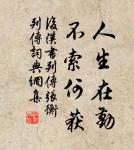 人生在勤
不索何获
後汉书列传张衡
列传词典网集